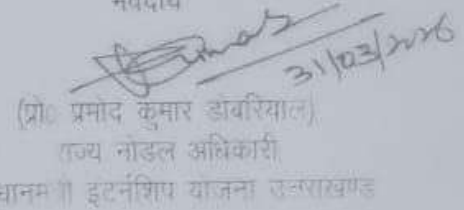 भवदीय
31/03/2026
(प्रो० प्रमोद कुमार डोबरियाल)
राज्य नोडल अधिकारी
इंटर्नशिप योजना उत्तराखण्ड